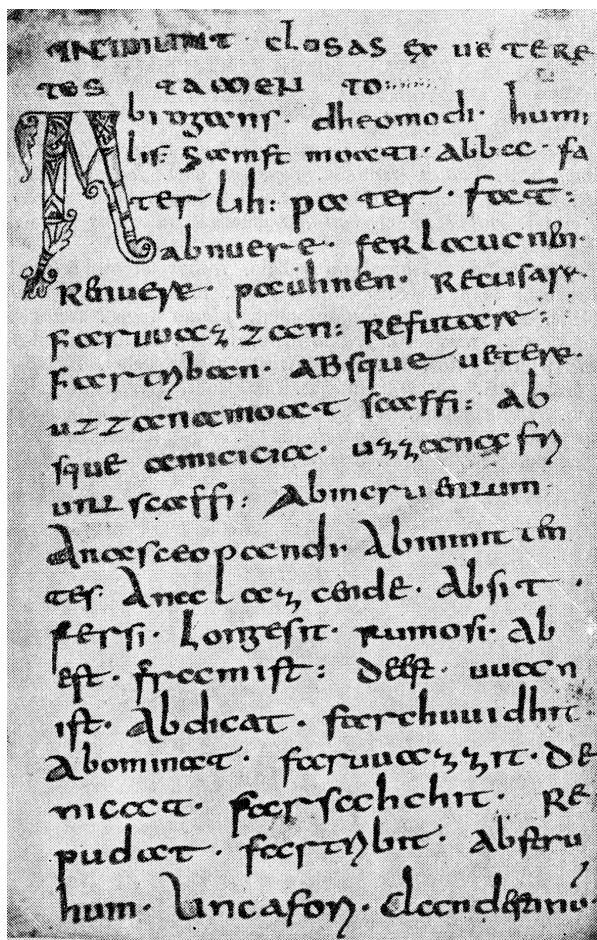 INCIPIUNT CLOSAS EX UETERE
TES TAMEN TO
Abrogans. dheomodi. humi
lis: samft moati. abbaa. fa
ter lih: pater. fat̄:
abnuere. ferlaucnen.
Renuere. pauhnen. Recusare.
Faruuazzan: Refutare:
Fartriban. ABsque uetere.
uzzanamoat scaffi: AB
sque amicicia. uzzana fri
untscaffi. Abincruentum
Anasceopandi. Abinminen
tes. Analoazcende. Absit.
fersi. Longesit. rumosi. Ab
est. framist: DEEst. uuan
ist. Abdicat. farchuuidhit.
Abominat. faruuazzit. DE
nicat. farsahchit. RE
pudat. fartribit. Abstru
hum. Uncafori. Clandestinu.